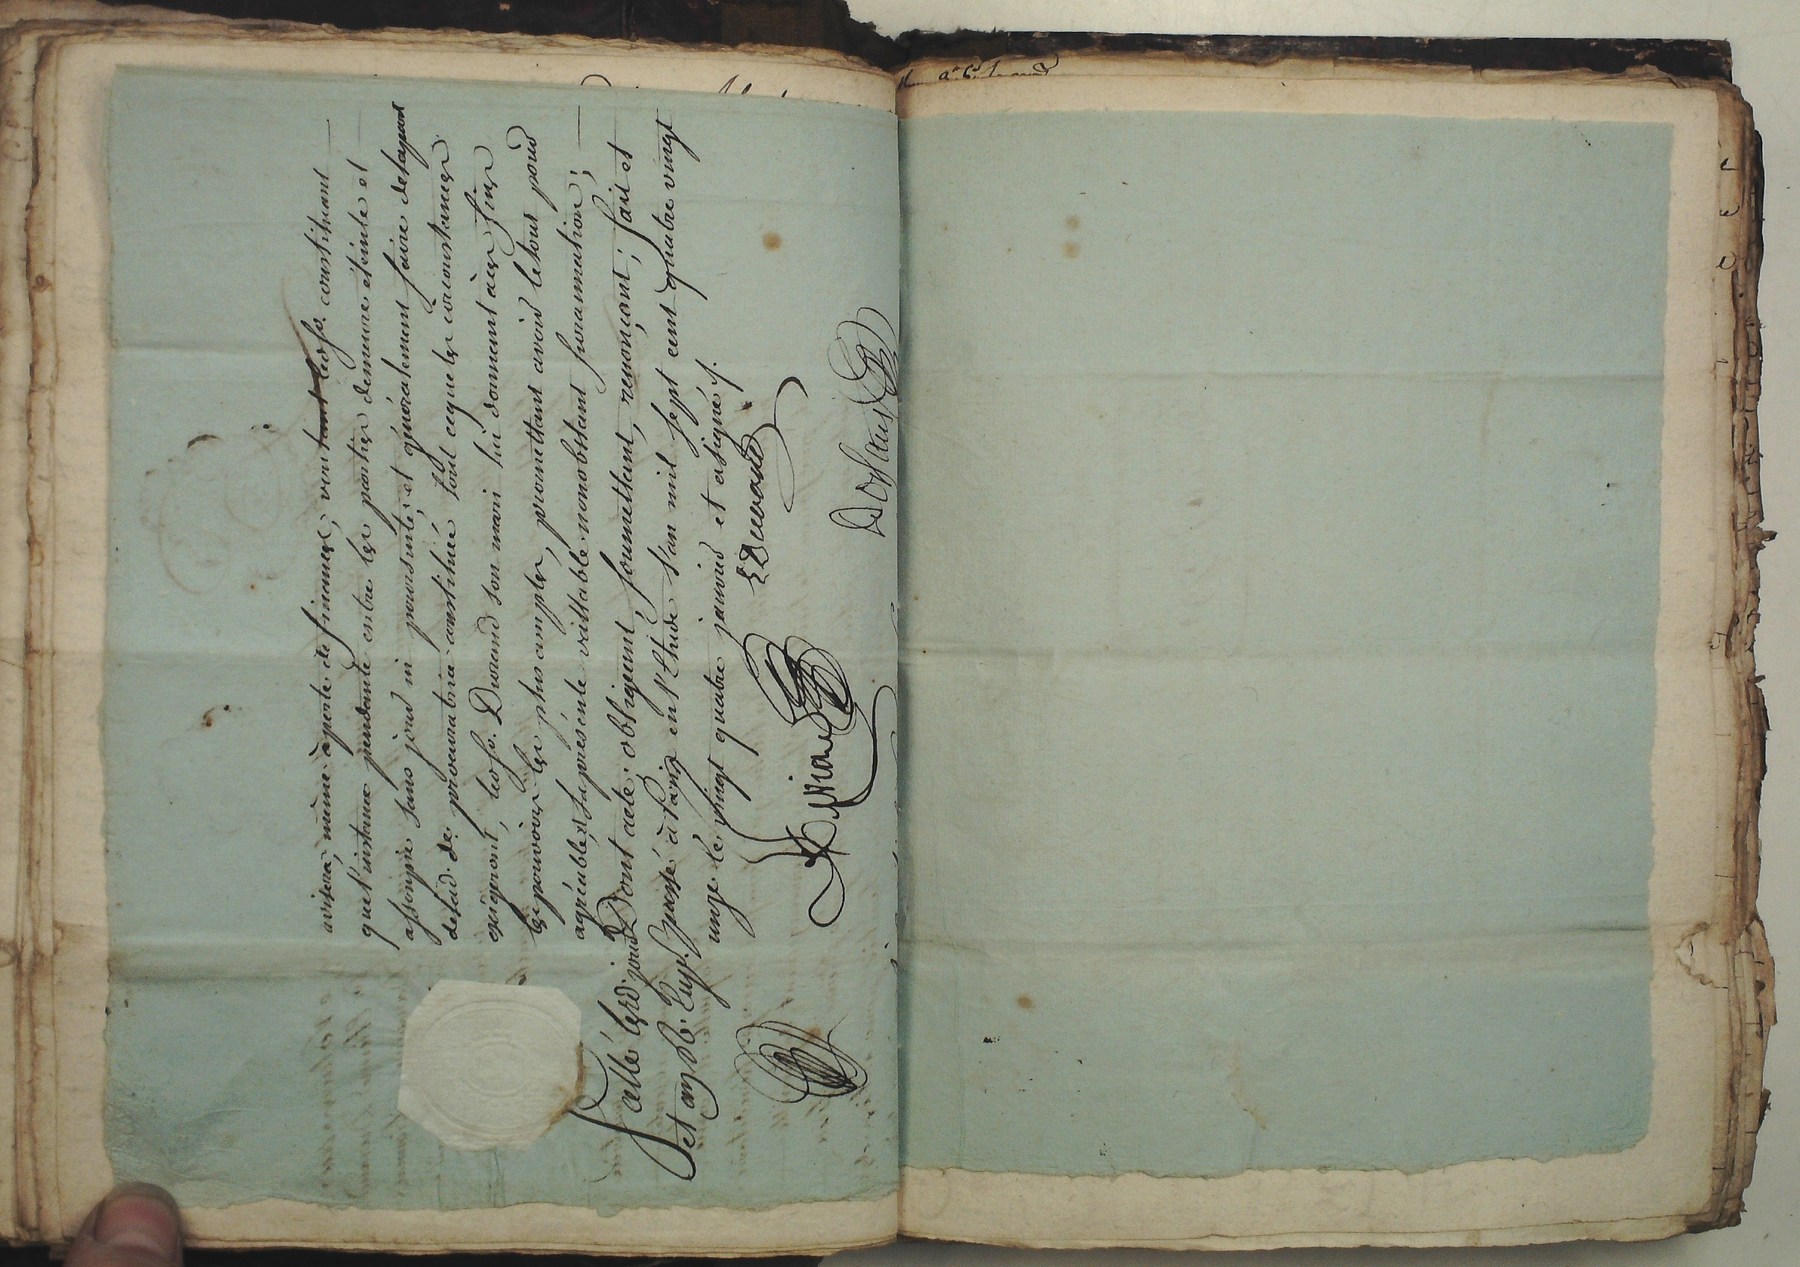 avisera, même à perte de finances, voulant led. s. constituant
que l'instance pendante entre les parties demeure éteinte et
assoupie sans jour ni poursuite, et généralement faire de la part
de lad. de. procuratrice constituée tout ce que les circonstances
exigeront, led. s. Durand son mari lui donnent à ces fins
les pouvoirs les plus amples, promettant avoir le tout pour
agréable, la présente vaillable nonobstant surannation;
Dont acte obligeant, soumettant, renonçant; fait et
passé à Paris en l'Etude l'an mil sept cent quatre vingt
onze le vingt quatre janvier et a signé ./.
Scellé lesd. jour
et an
Durand